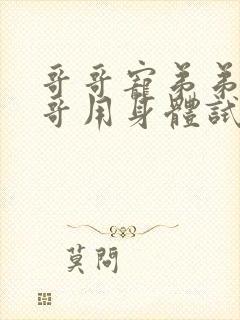 哥哥寵弟弟
哥用身體試
莫問